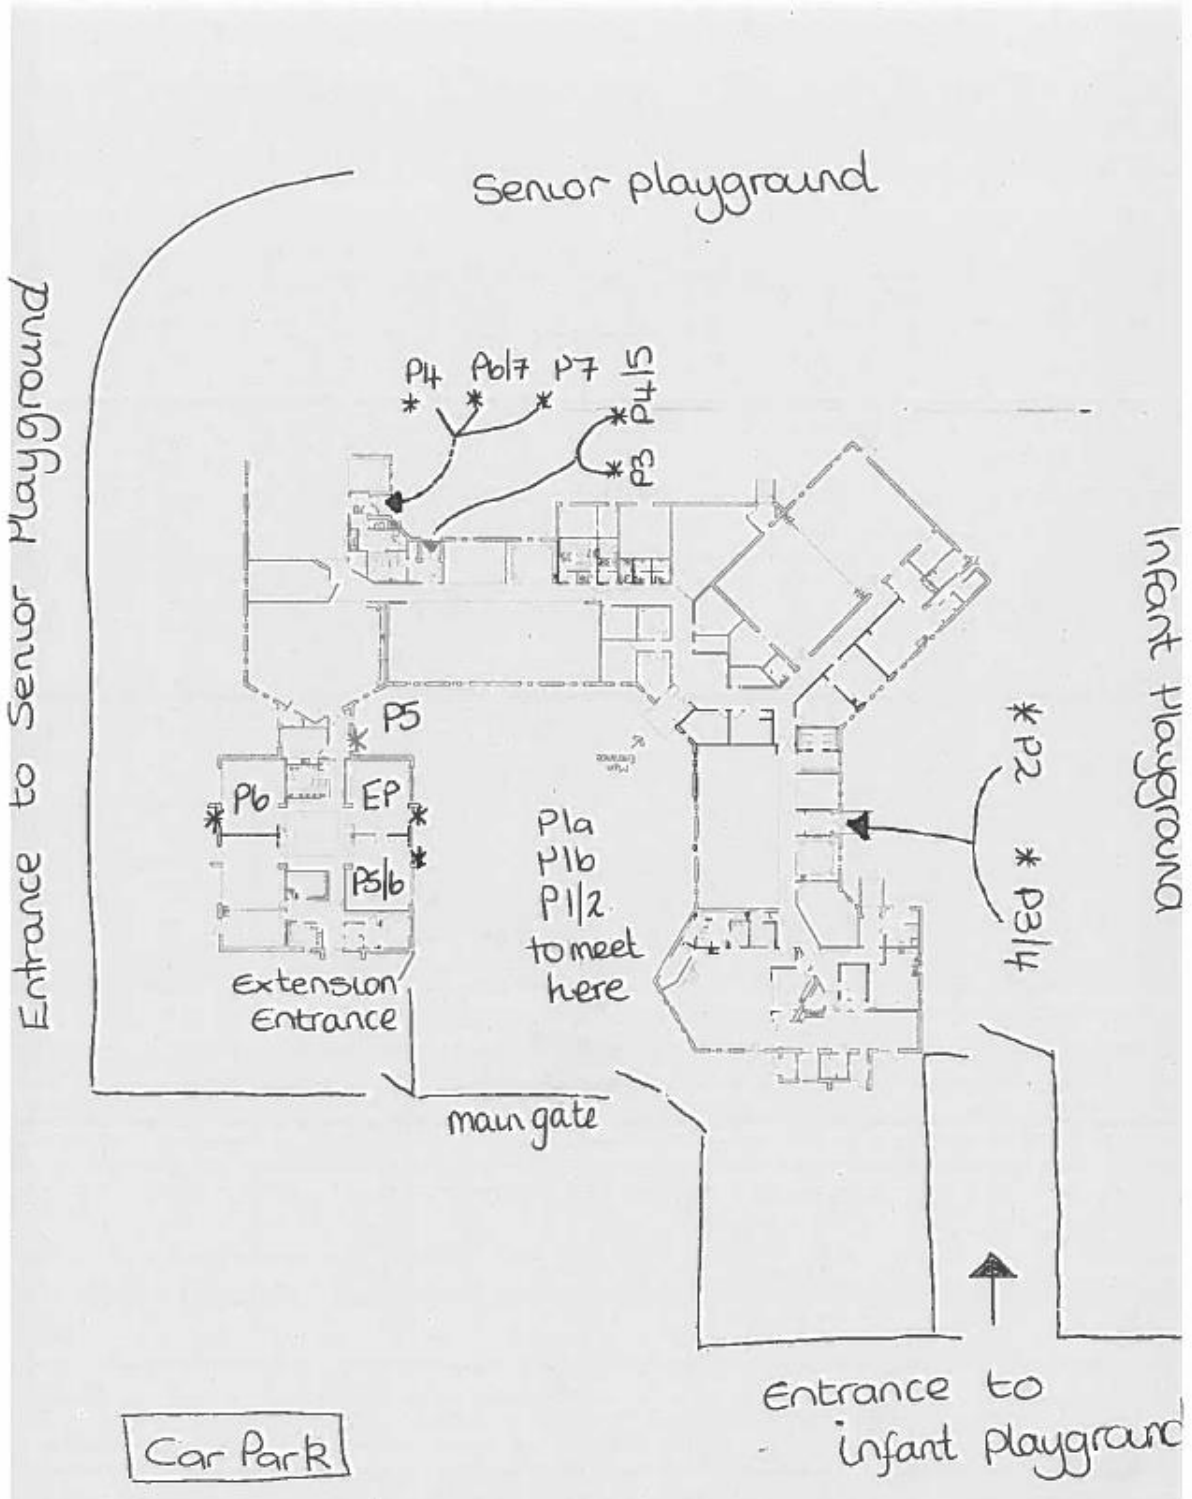 Senior playground
Entrance to Senior Playground
P4 P6/7 P7 P4/5
P3
Infant Playground
P5
Main
Entrance
P6 EP
P5/6
P1a
P1b
P1/2
to meet
here
P2
P3/4
Extension
Entrance
main gate
Entrance to
infant playground
Car Park